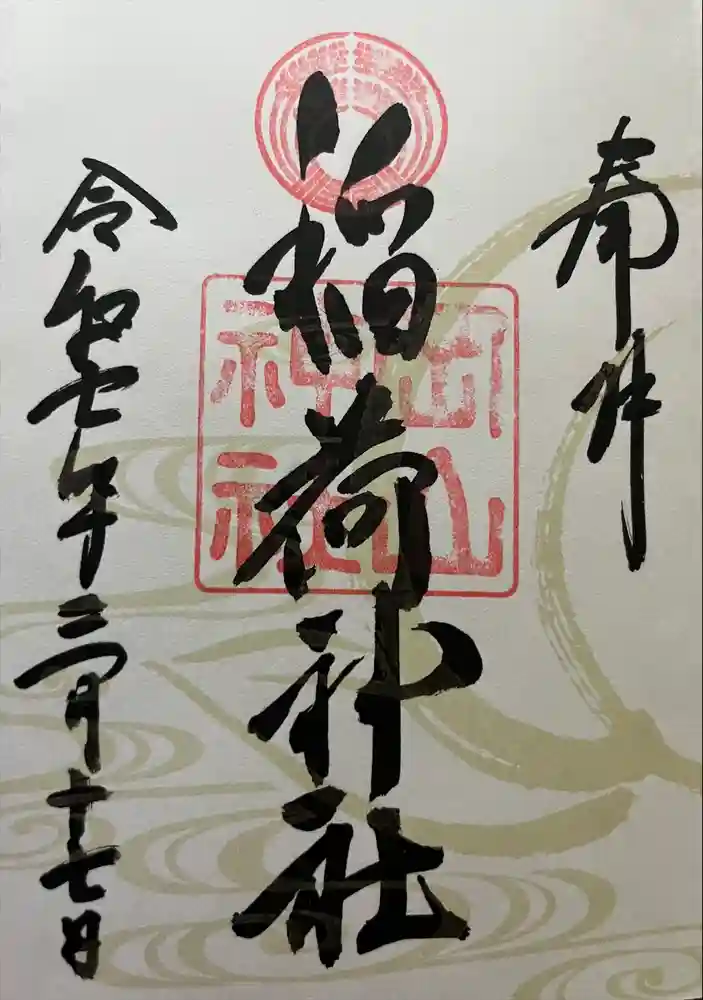 奉拝
稲荷神社
山
神社
令和七年三月十七日